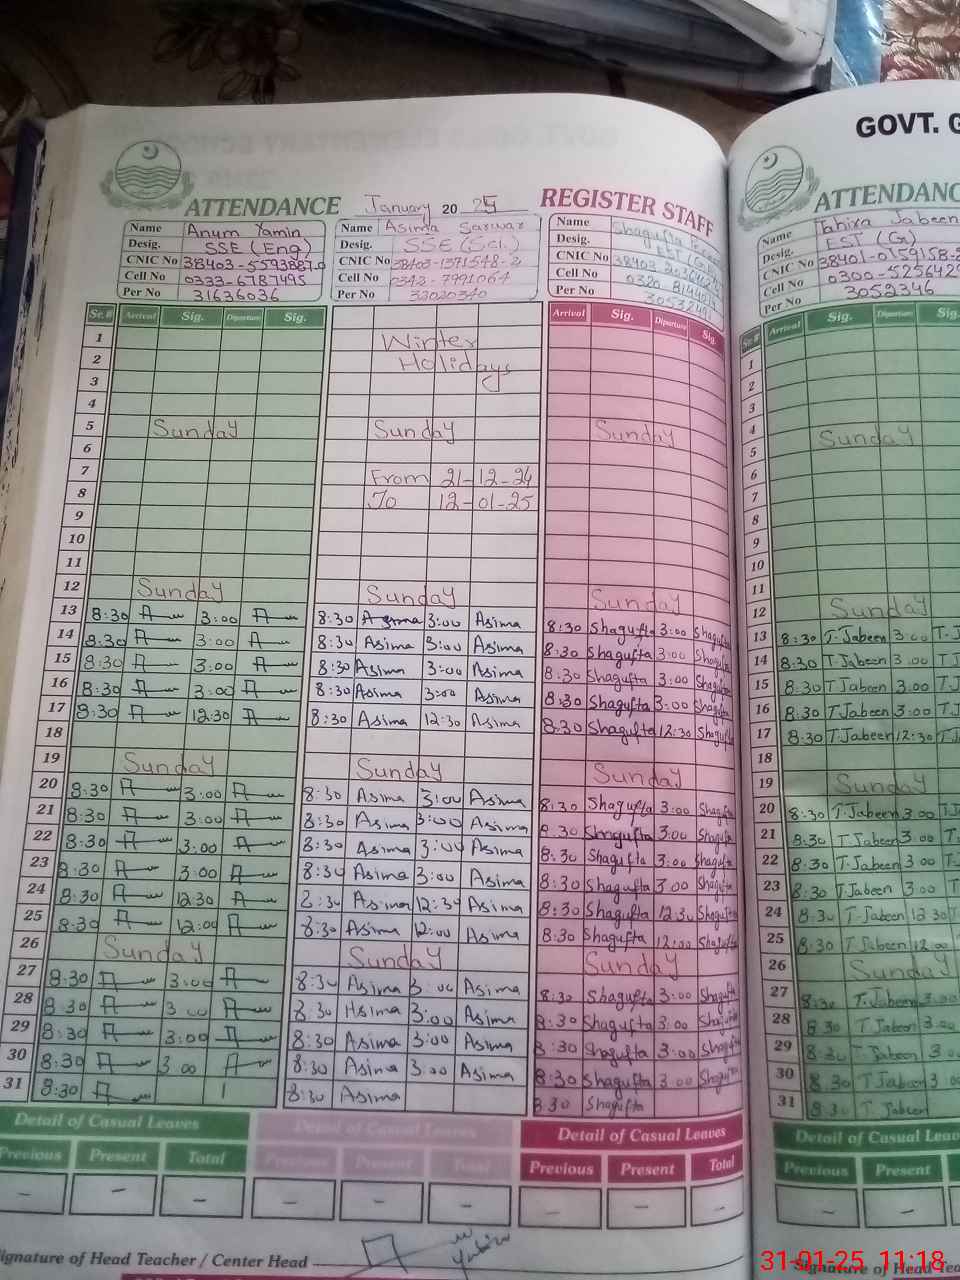 GOVT. G
ATTENDANCE January 20 25 REGISTER STAFF
Name Anum Yamin
Desig. SSE (Eng)
CNIC No 38403-5593887-0
Cell No 0333-6787495
Per No 31636036
Name Asima Sarwar
Desig. SSE (Sci)
CNIC No 38403-1371548-2
Cell No 0342-7991064
Per No 32020340
Name Shagufta
Desig.
CNIC No
Cell No
Per No
ATTENDANC
Name Tahira Jabeen
Desig. EST (G)
CNIC No 38401-0159158-
Cell No 0300-525642
Per No 3052346
Sr.# Arrival Sig. Diparture Sig. Arrival Sig. Diparture Sig. Sr.# Arrival Sig. Diparture Sig.
1 Winter 1
2 Holidays 2
3 3
4 4
5 Sunday Sunday Sunday Sunday 5
6 6
7 From 21-12-24 7
8 To 12-01-25 8
9 9
10 10
11 11
12 Sunday Sunday Sunday 12 Sunday
13 8:30 A 3:00 A 8:30 Asima 3:00 Asima 8:30 Shagufta 3:00 Shagufta 13 8:30 T.Jabeen 3:00 T.J
14 8:30 A 3:00 A 8:30 Asima 3:00 Asima 8:30 Shagufta 3:00 Shagufta 14 8:30 T.Jabeen 3.00 T.J
15 8:30 A 3:00 A 8:30 Asima 3:00 Asima 8:30 Shagufta 3:00 Shagufta 15 8:30 T.Jabeen 3.00 T.J
16 8:30 A 3:00 A 8:30 Asima 3:00 Asima 8:30 Shagufta 3:00 Shagufta 16 8:30 T.Jabeen 3:00 T.J
17 8:30 A 12:30 A 8:30 Asima 12:30 Asima 8:30 Shagufta 12:30 Shagufta 17 8:30 T.Jabeen 12:30 T.J
18 18
19 Sunday Sunday Sunday 19 Sunday
20 8:30 A 3:00 A 8:30 Asima 3:00 Asima 8:30 Shagufta 3:00 Shagufta 20 8:30 T.Jabeen 3.00 T.J
21 8:30 A 3:00 A 8:30 Asima 3:00 Asima 8:30 Shagufta 3:00 Shagufta 21 8:30 T.Jabeen 3.00 T
22 8:30 A 3:00 A 8:30 Asima 3:00 Asima 8:30 Shagufta 3:00 Shagufta 22 8:30 T.Jabeen 3:00 T
23 8:30 A 3:00 A 8:30 Asima 3:00 Asima 8:30 Shagufta 3:00 Shagufta 23 8:30 T.Jabeen 3:00 T
24 8:30 A 12:30 A 8:30 Asima 12:30 Asima 8:30 Shagufta 12:30 Shagufta 24 8:30 T.Jabeen 12:30 T
25 8:30 A 12:00 A 8:30 Asima 12:00 Asima 8:30 Shagufta 12:00 Shagufta 25 8:30 T.Jabeen 12:00
26 Sunday Sunday Sunday 26 Sunday
27 8:30 A 3:00 A 8:30 Asima 3:00 Asima 8:30 Shagufta 3:00 Shagufta 27 8:30 T.Jabeen 3.00
28 8:30 A 3:00 A 8:30 Asima 3:00 Asima 8:30 Shagufta 3:00 Shagufta 28 8:30 T.Jabeen 3.00
29 8:30 A 3:00 A 8:30 Asima 3:00 Asima 8:30 Shagufta 3:00 Shagufta 29 8:30 T.Jabeen 3:0
30 8:30 A 3:00 A 8:30 Asima 3:00 Asima 8:30 Shagufta 3:00 Shagufta 30 8:30 T.Jabeen 3:00
31 8:30 A 8:30 Asima 8:30 Shagufta 31 8:30 T.Jabeen
Detail of Casual Leaves Detail of Casual Leaves Detail of Casual Leaves Detail of Casual Leav
Previous Present Total Previous Present Total Previous Present Total Previous Present
– – – – – – – – – – –
Signature of Head Teacher / Center Head
Signature of Head Tea
31-01-25 11:18